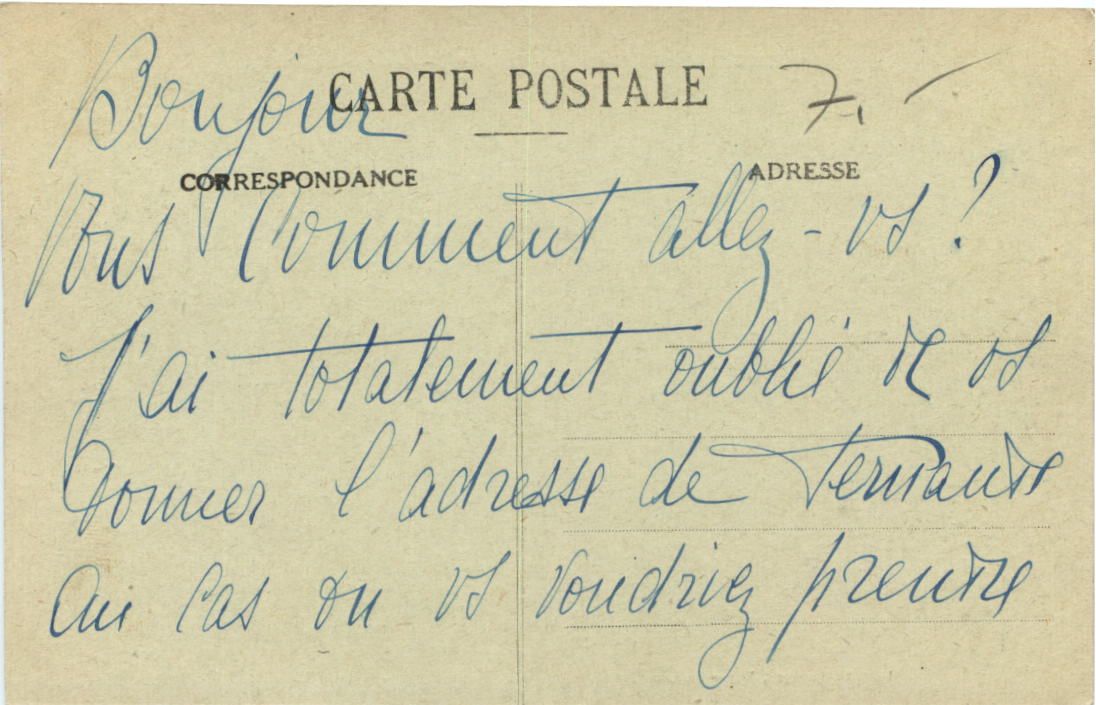 Bonjour
CARTE POSTALE
7,-
CORRESPONDANCE
ADRESSE
Vous Comment allez-vs ?
J'ai totalement oublié de vs
donner l'adresse de Fernande
Au cas ou vs voudriez prendre